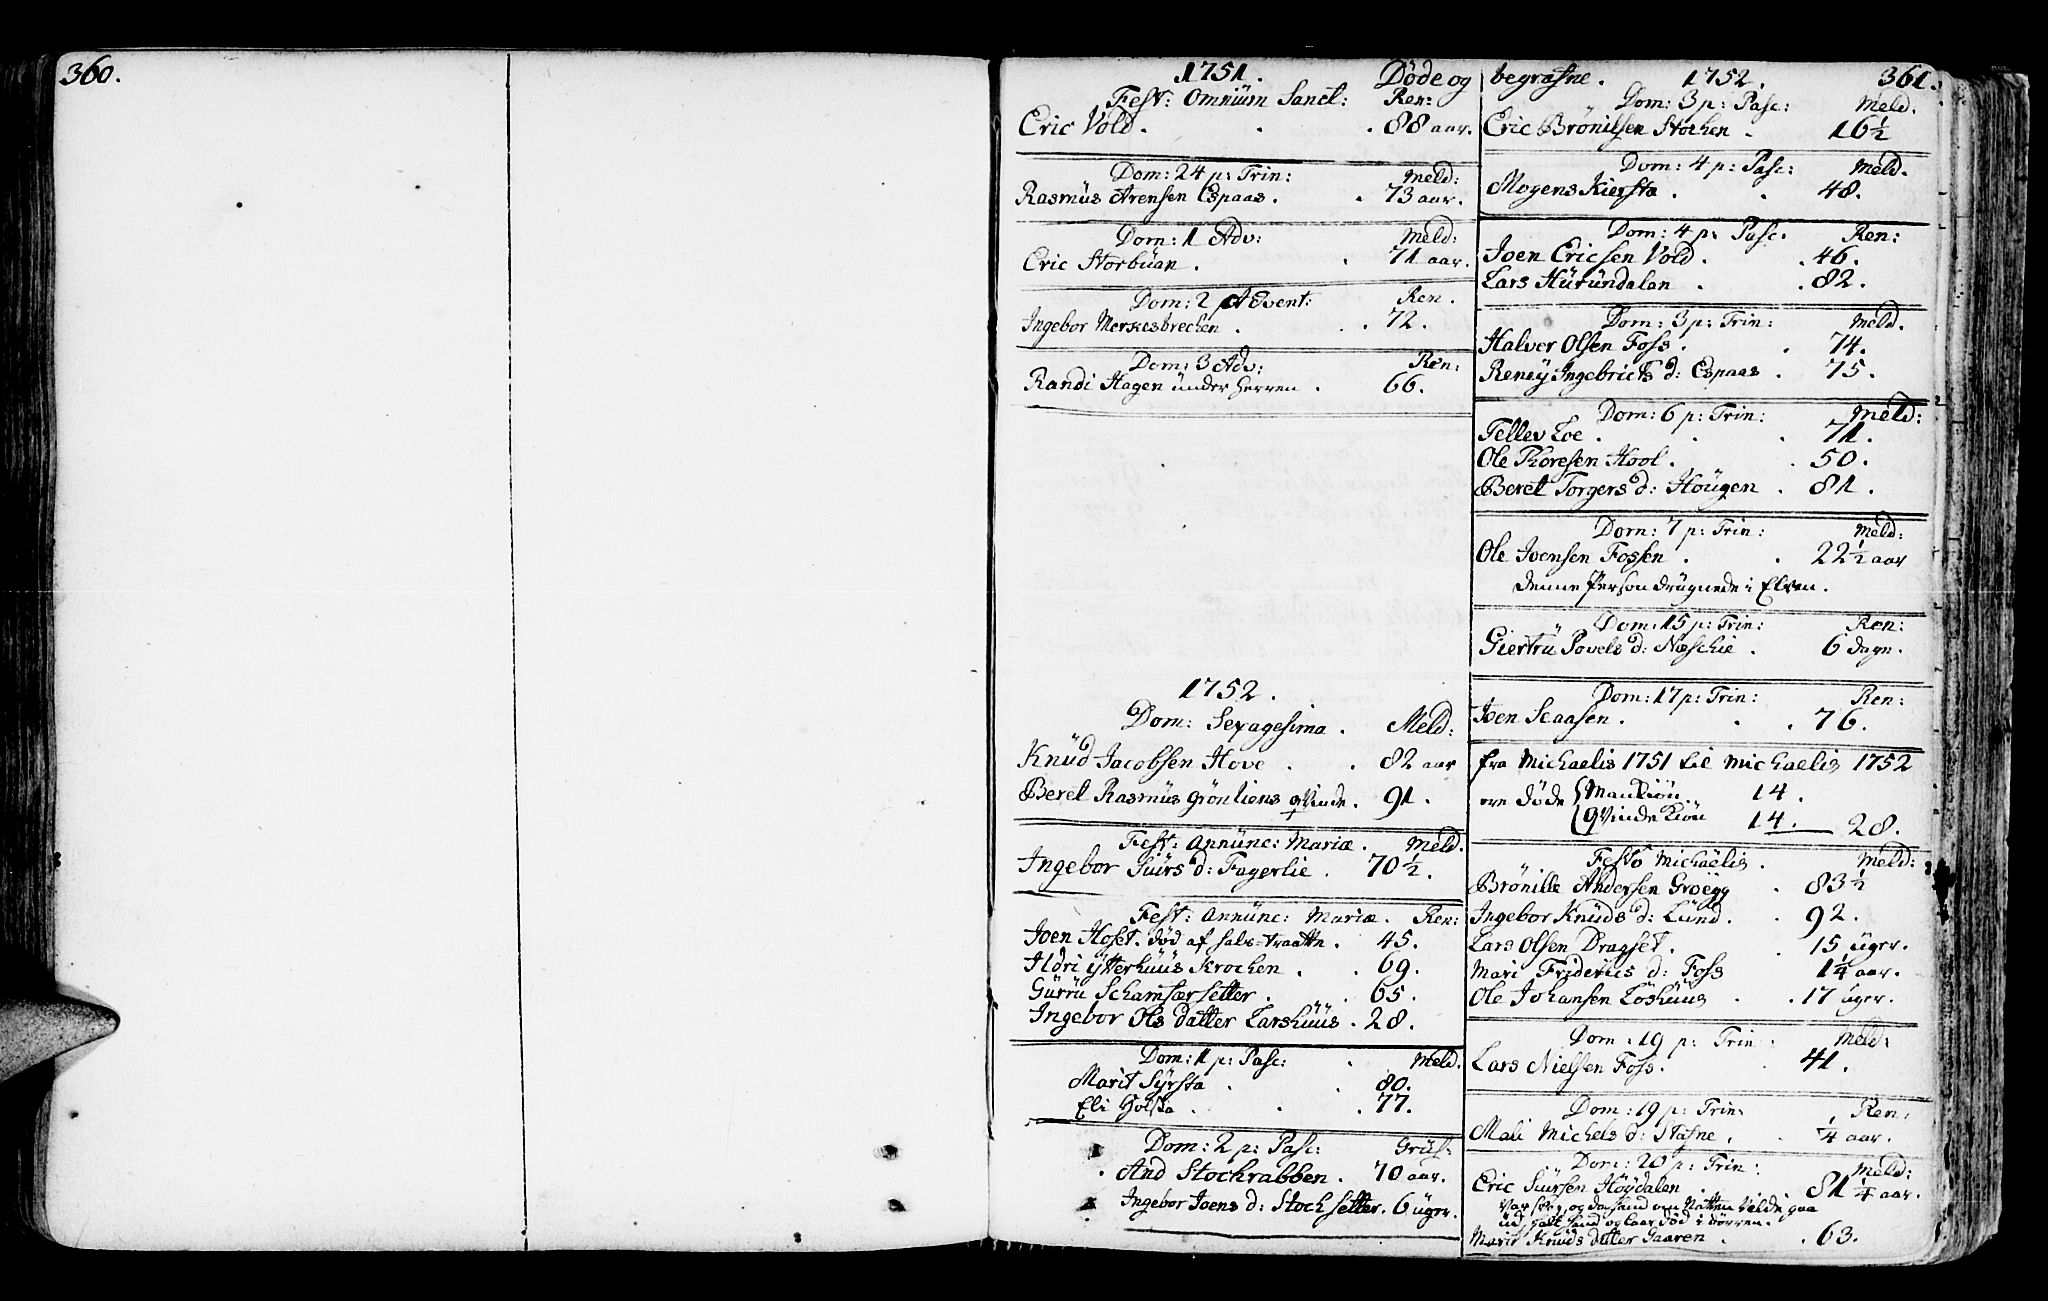 360.
1751. Døde og
Fest: Omnium Sanct: Ren:
Eric Vold. 88 aar.
Dom: 24 p: Trin: Meld:
Rasmus Arensen Espaas. 73 aar.
Dom: 1 Adv: Meld:
Eric Storbuan. 71 aar.
Dom: 2 Advent: Ren.
Ingebor Merkesbrechen. 72.
Dom: 3 Adv: Ren:
Randi Hagen under Herren. 66.
1752.
Dom: Sexagesima. Meld:
Knud Jacobsen Hove. 82 aar
Beret Rasmus Grønliens qvinde. 91.
Fest: Annunc: Mariæ. Meld.
Ingebor Guurs d: Fagerlie. 70½.
Fest: Annunc: Mariæ. Ren:
Joen Hoset. død af hals=traatte. 45.
Ildri Ytterhuus Krochen. 69.
Gurru Schamfærsetter. 65.
Ingebor Ols datter Larshuus. 28.
Dom: 1 p: Pasc: Meld.
Marit Syrsta. 80.
Eli Holsta. 77.
Dom: 2 p: Pasc: Grus:
And Stochrabben. 70 aar.
Ingebor Joens d: Stochsetter. 6 uger.
begrafne. 1752. 361.
Dom: 3 p: Pasc: Meld:
Eric Brønilsen Stochen. 16½
Dom: 4 p: Pasc: Meld.
Mogens Kiersta. 48.
Dom: 4 p: Pasc. Ren:
Joen Ericsen Vold. 46.
Lars Hurundalan. 82.
Dom: 3 p: Trin: Meld.
Halver Olsen Foss. 74.
Reney Ingebricts d: Espaas. 75.
Dom: 6 p: Trin: Meld:
Tellev Loe. 71.
Ole Thoresen Hool. 50.
Beret Torgers d: Hougen. 81.
Dom: 7 p: Trin: Meld:
Ole Joensen Fossen. 22½ aar
denne Person drugnede i Elven.
Dom: 15 p: Trin: Ren:
Giertru Povels d: Næschie. 6 dage.
Dom: 17 p: Trin: Ren:
Joen Seaasen. 76.
fra Michaelis 1751 til Michaelis 1752
ere døde { Mankiøn 14.
{ Qvindekiøn 14. 28.
Festo Michaëlis. Meld:
Brønille Andersen Groegg 83½
Ingebor Knuds d: Lund. 92.
Lars Olsen Dragset. 15 uger.
Mari Friderics d: Foss 1¼ aar.
Ole Johansen Løshuus. 17 uger.
Dom: 19 p: Trin. Meld:
Lars Nielsen Foss. 41.
Dom: 19 p: Trin: Ren:
Mali Michels d: Stafne. ¼ aar.
Dom: 20 p: Trin: Meld:
Eric Siursen Høydalen. 81¼ aar.
Var svag, og da hand om Natten vilde gaa
ud, falt hand og laae død i dørren.
Marit Knuds datter Gaaren. 63.